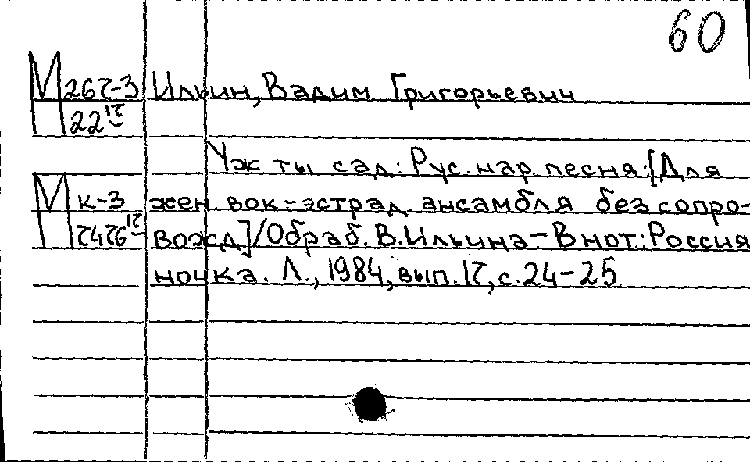 60
М 267-3 Ильин, Вадим Григорьевич
22 17
Уж ты сад: Рус. нар. песня: [Для
М к-3 жен. вок-эстрад. ансамбля без сопро-
вожд]/Обраб. В. Ильина - В нот: Россия
ночка. Л., 1984, вып. 17, с. 24-25